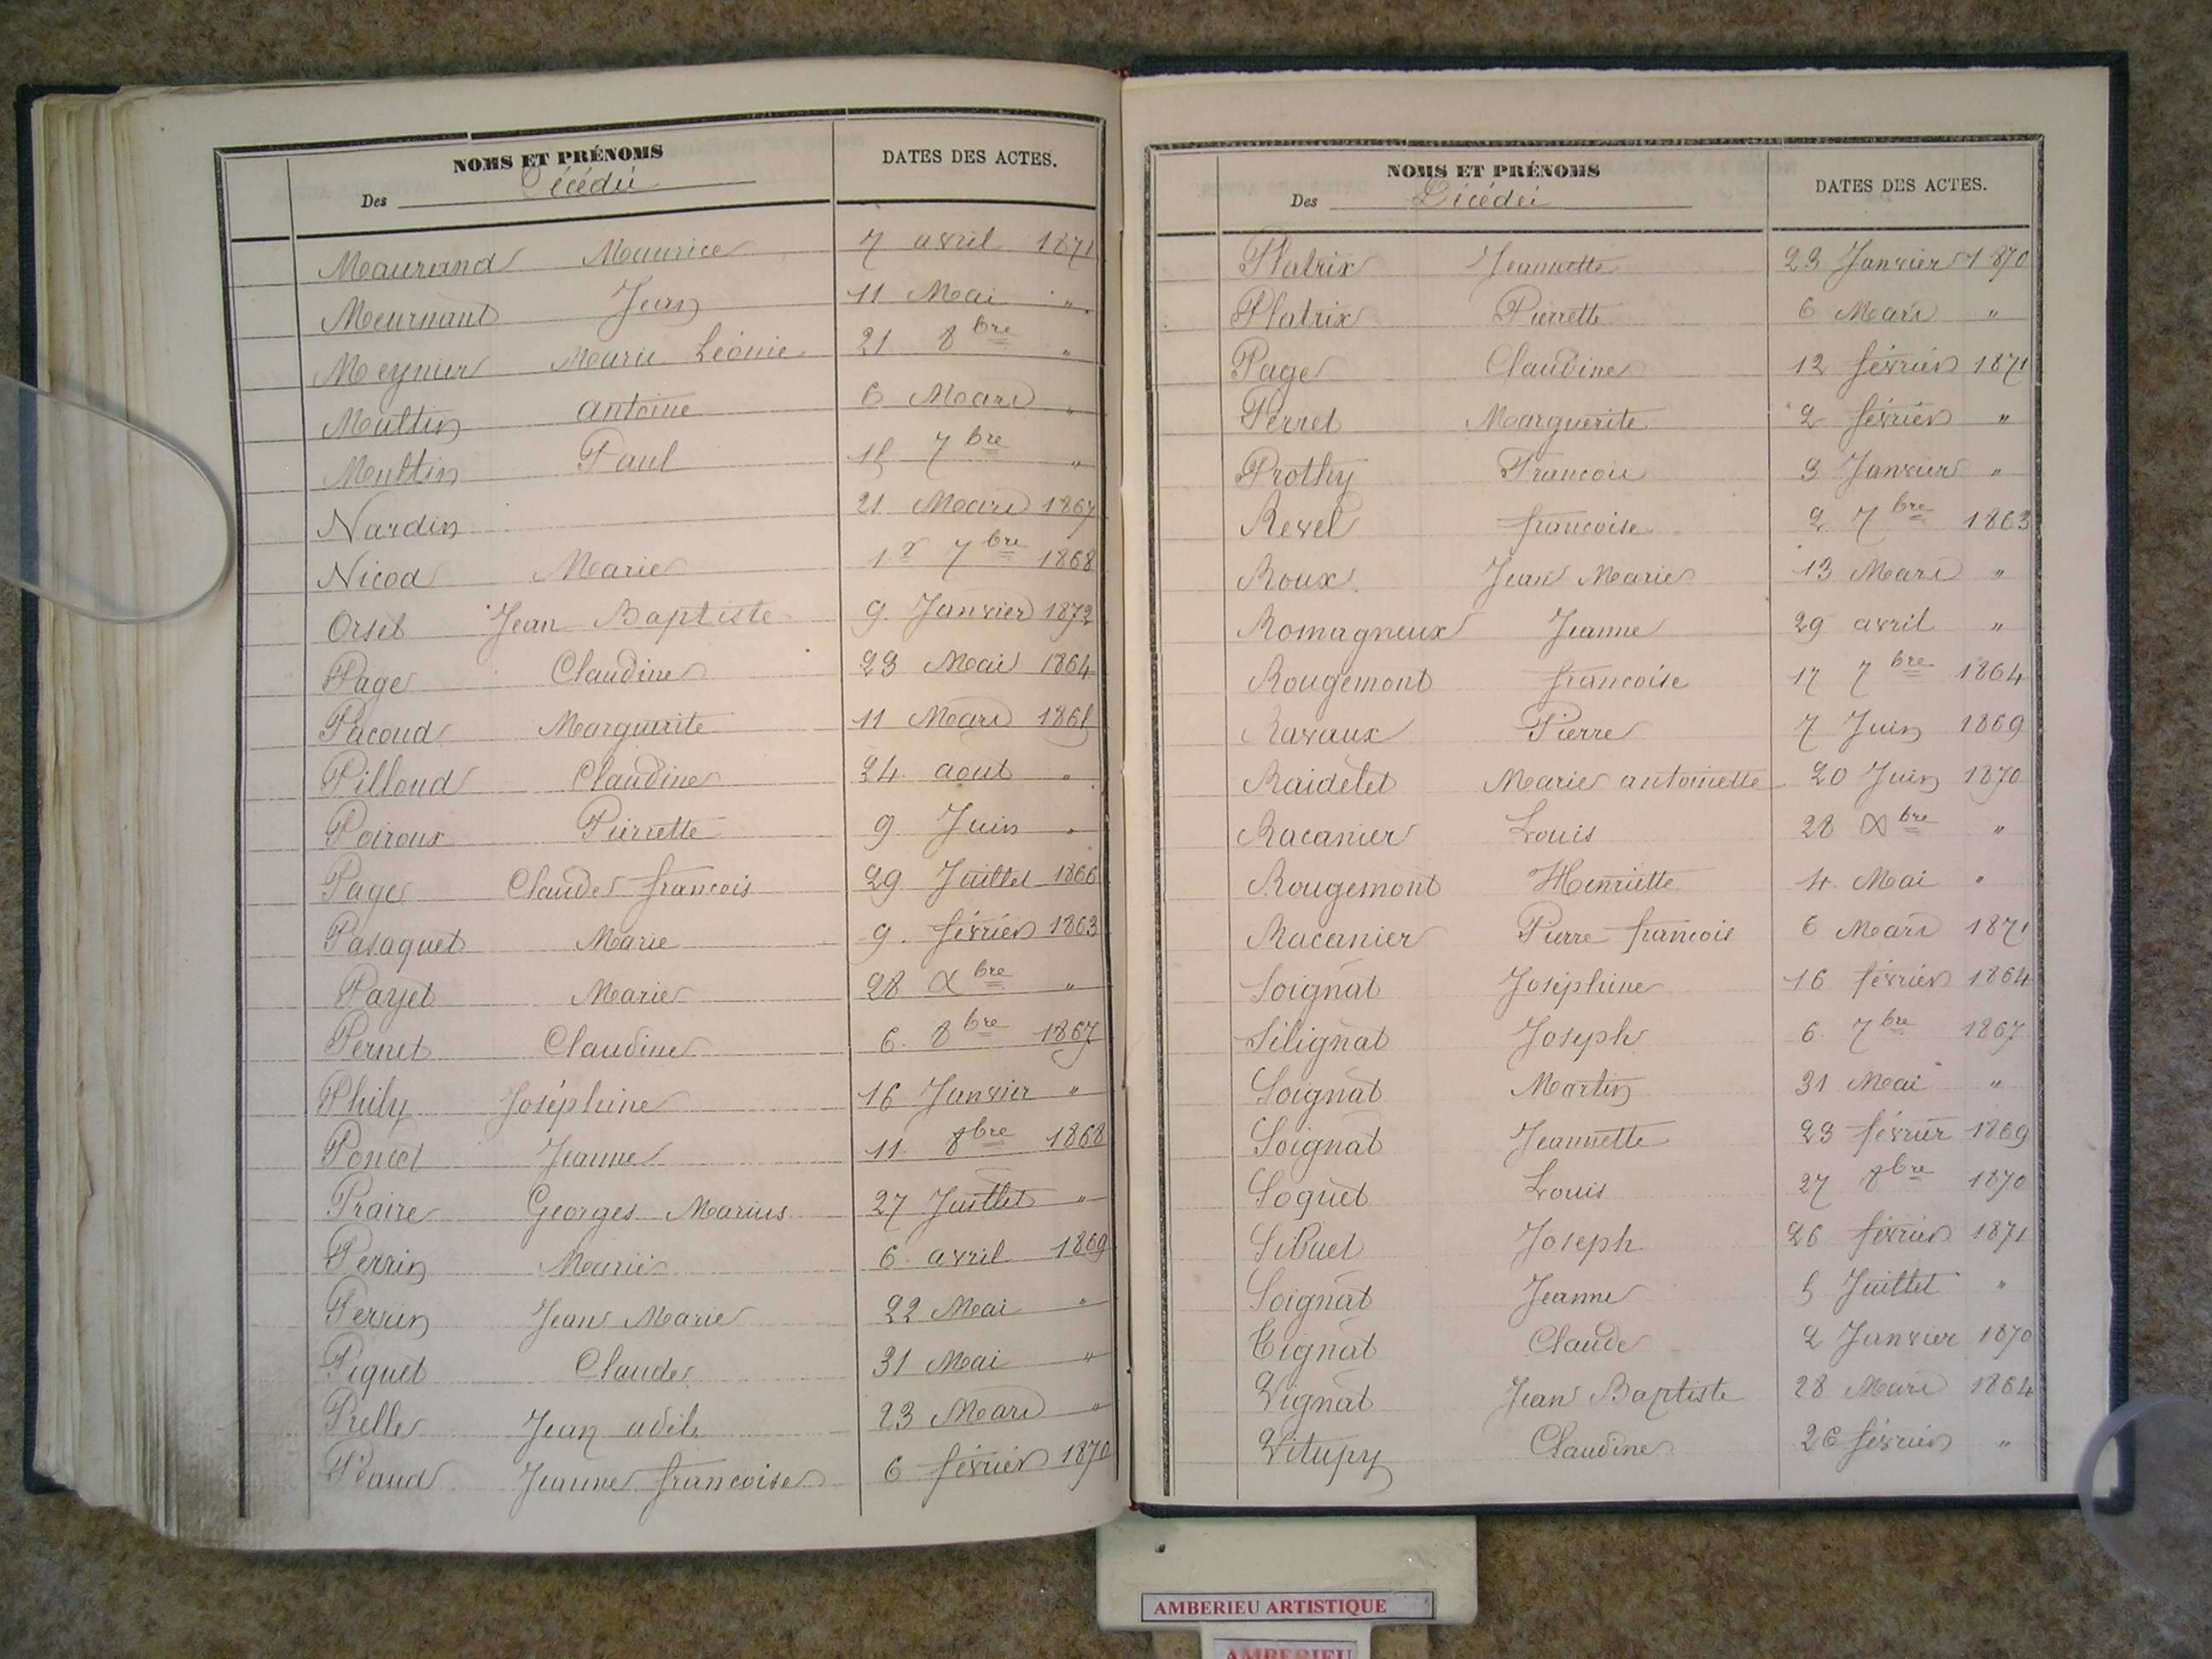 NOMS ET PRÉNOMS
Des Décédés
DATES DES ACTES.
Maurand Maurice 7 avril 1871
Meurnant Jean 11 Mai "
Meynier Marie Léonie 21 8bre "
Multin antoine 6 Mars "
Multin Paul 15 7bre "
Nardin 21 Mars 1867
Nicod Marie 1er 7bre 1868
Orset Jean Baptiste 9 Janvier 1872
Page Claudine 23 Mai 1864
Pacoud Marguerite 11 Mars 1865
Pilloud Claudine 24 aout "
Poiroux Pierrette 9 Juin "
Page Claude francois 29 Juillet 1866
Pasaquet Marie 9 février 1863
Payet Marie 28 Xbre "
Pernet Claudine 6 8bre 1867
Phily Joséphine 16 Janvier "
Poncet Jeanne 11 8bre 1868
Praire Georges Marius 27 Juillet "
Perrin Marie 6 avril 1869
Perrin Jean Marie 22 Mai "
Piquet Claude 31 Mai "
Prelle Jean adile 23 Mars "
Plaud Jeanne francoise 6 février 1870
NOMS ET PRÉNOMS
Des Décédés
DATES DES ACTES.
Platrix Jeannette 23 Janvier 1870
Platrix Pierrette 6 Mars "
Page Claudine 12 février 1871
Perret Marguerite 2 février "
Prothy Francois 3 Janvier "
Revel francoise 2 7bre 1863
Roux Jean Marie 13 Mars "
Romagneux Jeanne 29 avril "
Rougemont francoise 17 7bre 1864
Ravaux Pierre 7 Juin 1869
Raidelet Marie antoinette 20 Juin 1870
Racanier Louis 28 Xbre "
Rougemont Henriette 4 Mai "
Racanier Pierre francois 6 Mars 1871
Soignat Joséphine 16 février 1864
Silignat Joseph 6 7bre 1867
Soignat Martin 31 Mai "
Soignat Jeannette 23 février 1869
Soquet Louis 27 8bre 1870
Sibuet Joseph 26 février 1871
Soignat Jeanne 5 Juillet "
Tignat Claude 2 Janvier 1870
Vignat Jean Baptiste 28 Mars 1864
Vitupy Claudine 26 février "
AMBERIEU ARTISTIQUE
AMBERIEU